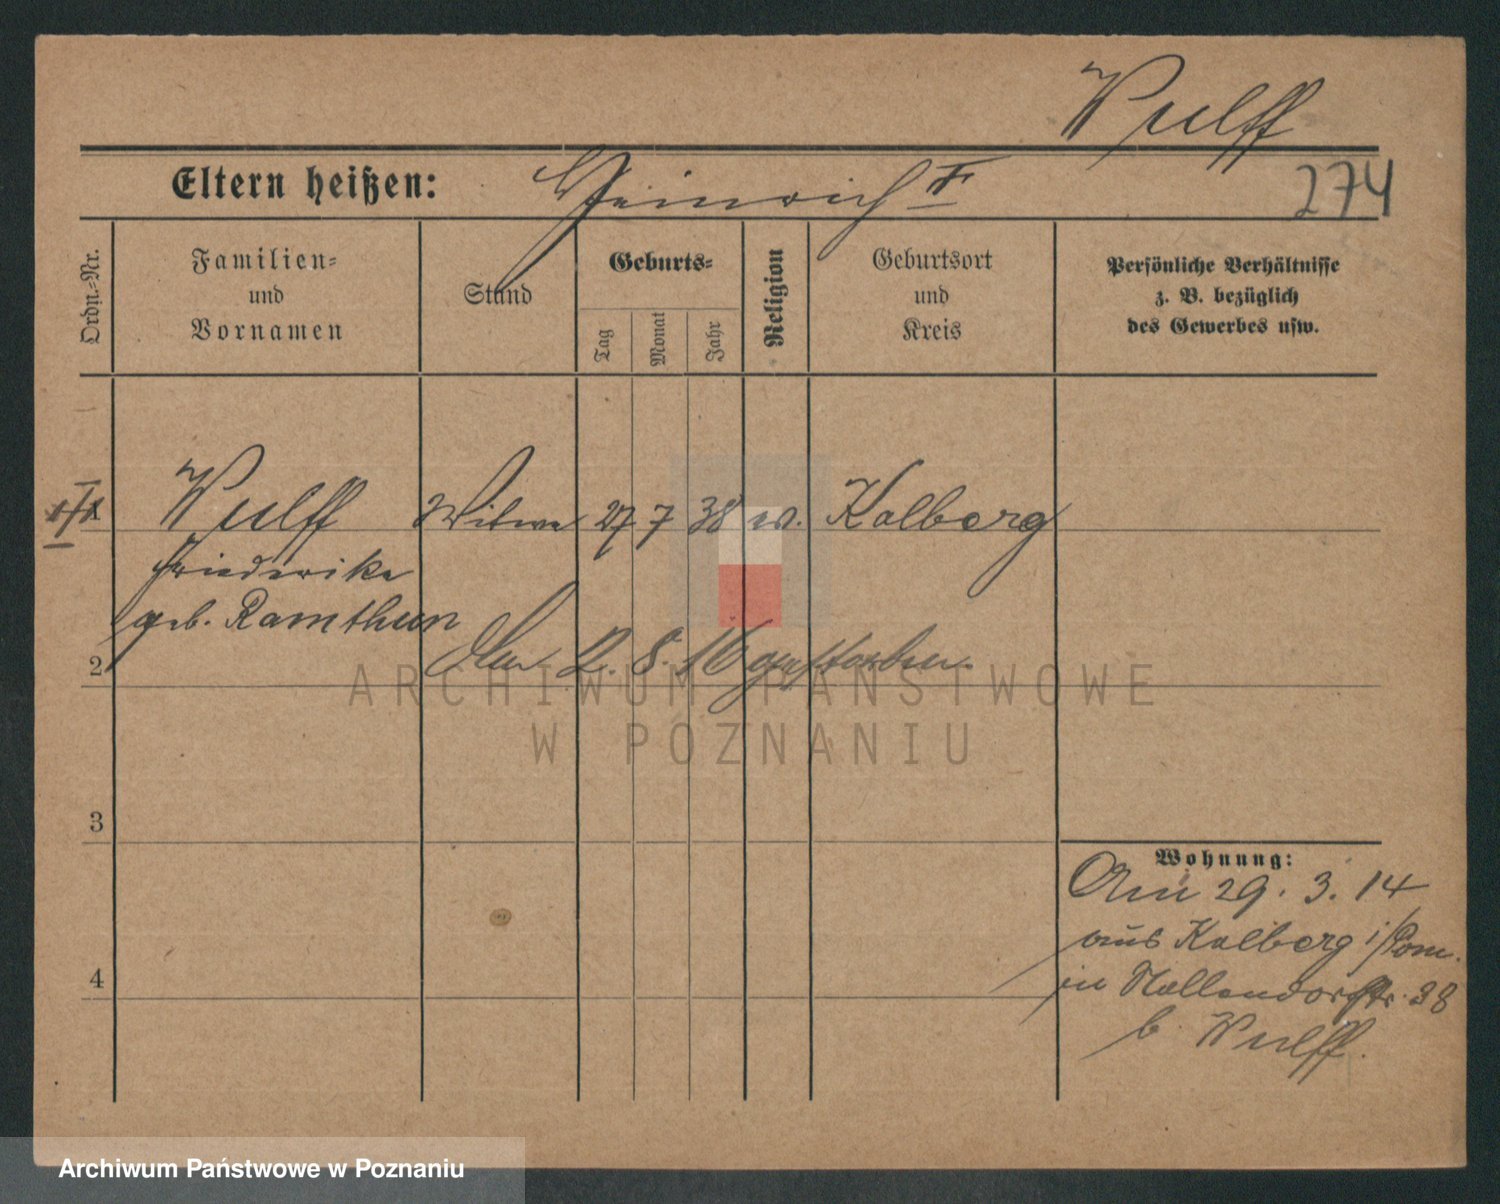 Wulff
Eltern heißen: Heinrich †
274
Ordn.-Nr.
Familien-
und
Vornamen
Stand
Geburts-
Tag
Monat
Jahr
Religion
Geburtsort
und
Kreis
Persönliche Verhältnisse
z. B. bezüglich
des Gewerbes usw.
1 Wulff Witwe 27 7 38 ev. Kolberg
Friederike
geb. Ramthun
2 Am 2. 8. 16 gestorben.
3
4
Wohnung:
Am 29. 3. 14
aus Kolberg i/Pom.
in Nollendorfstr. 38
b. Wulff.
ARCHIWUM PAŃSTWOWE
W POZNANIU
Archiwum Państwowe w Poznaniu